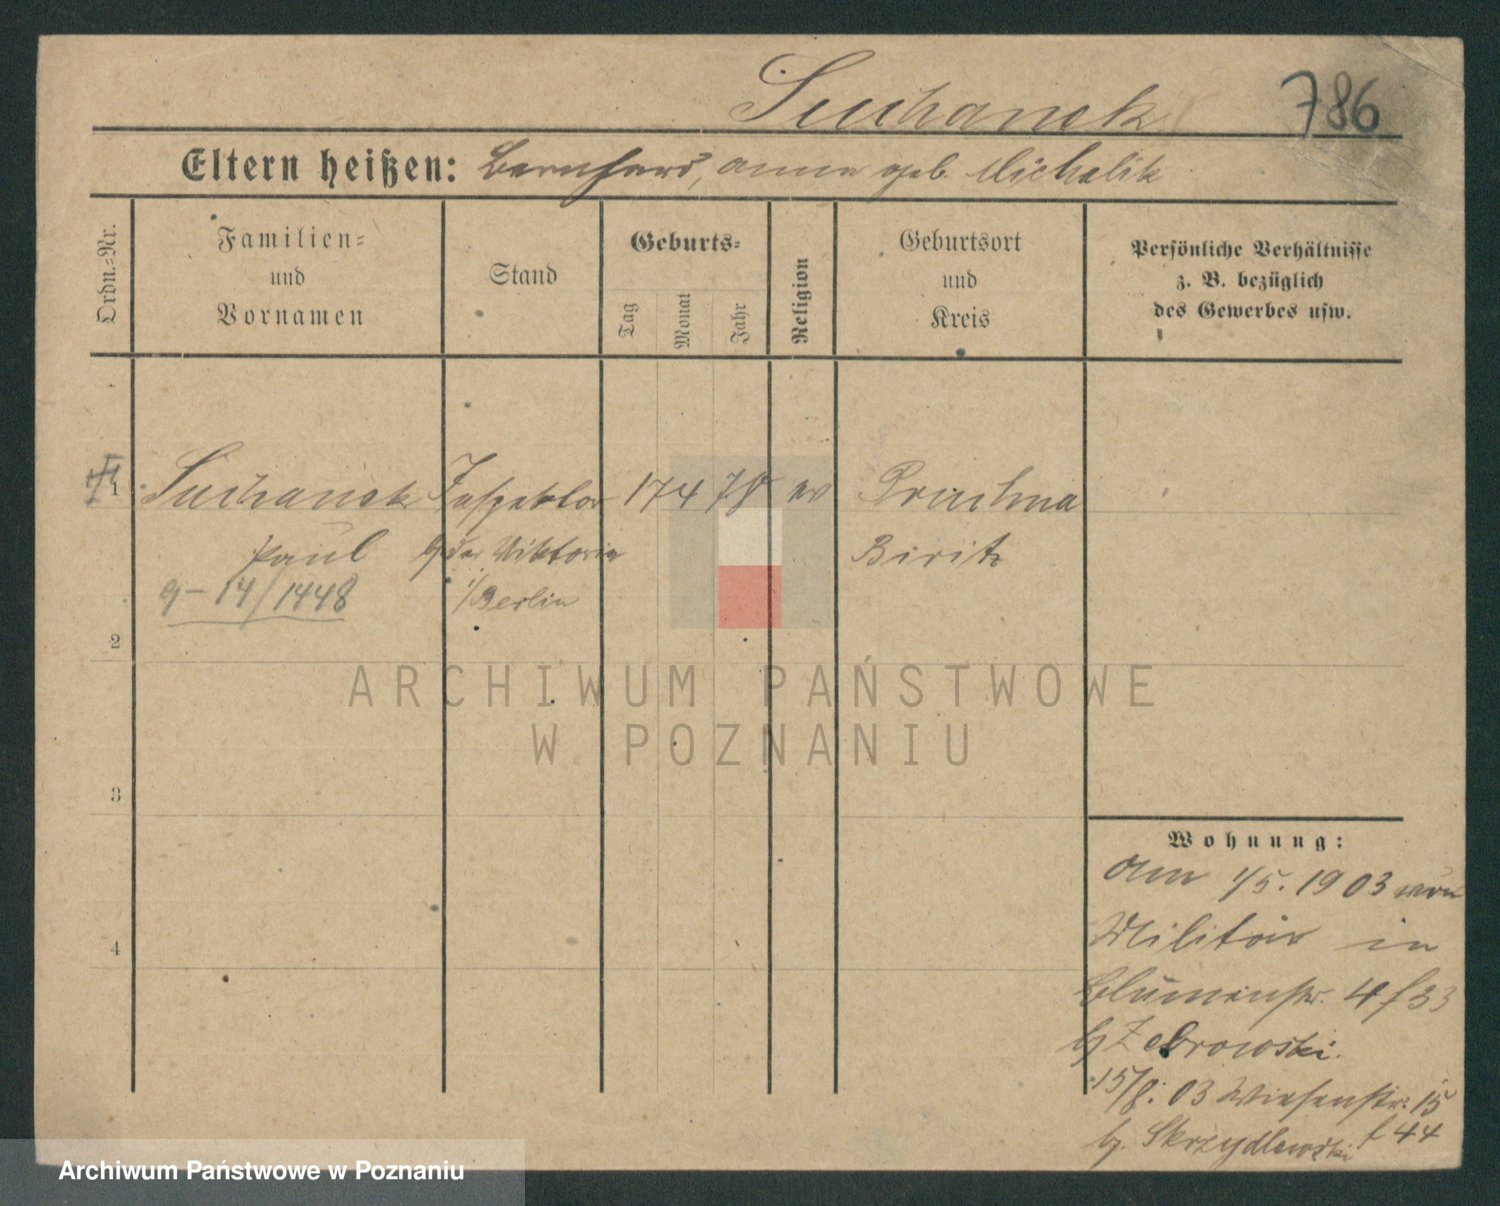 Suchanek 786
Eltern heißen: Bernhard, Anna geb. Michalik
Ordn.-Nr.
Familien-
und
Vornamen
Stand
Geburts-
Tag
Monat
Jahr
Religion
Geburtsort
und
Kreis
Persönliche Verhältnisse
z. B. bezüglich
des Gewerbes usw.
1 Suchanek Inspektor 17 4 78 ev Prachma
Paul der Viktoria
9-14/1448 i/Berlin
2
3
4
ARCHIWUM PAŃSTWOWE
W POZNANIU
Wohnung:
Am 1/5. 1903 vom
Militär in
Blumenstr. 4
b/ Zebrowski.
15/8. 03 Wiesenstr. 15
b/. Skrzydlewski f 44
Archiwum Państwowe w Poznaniu